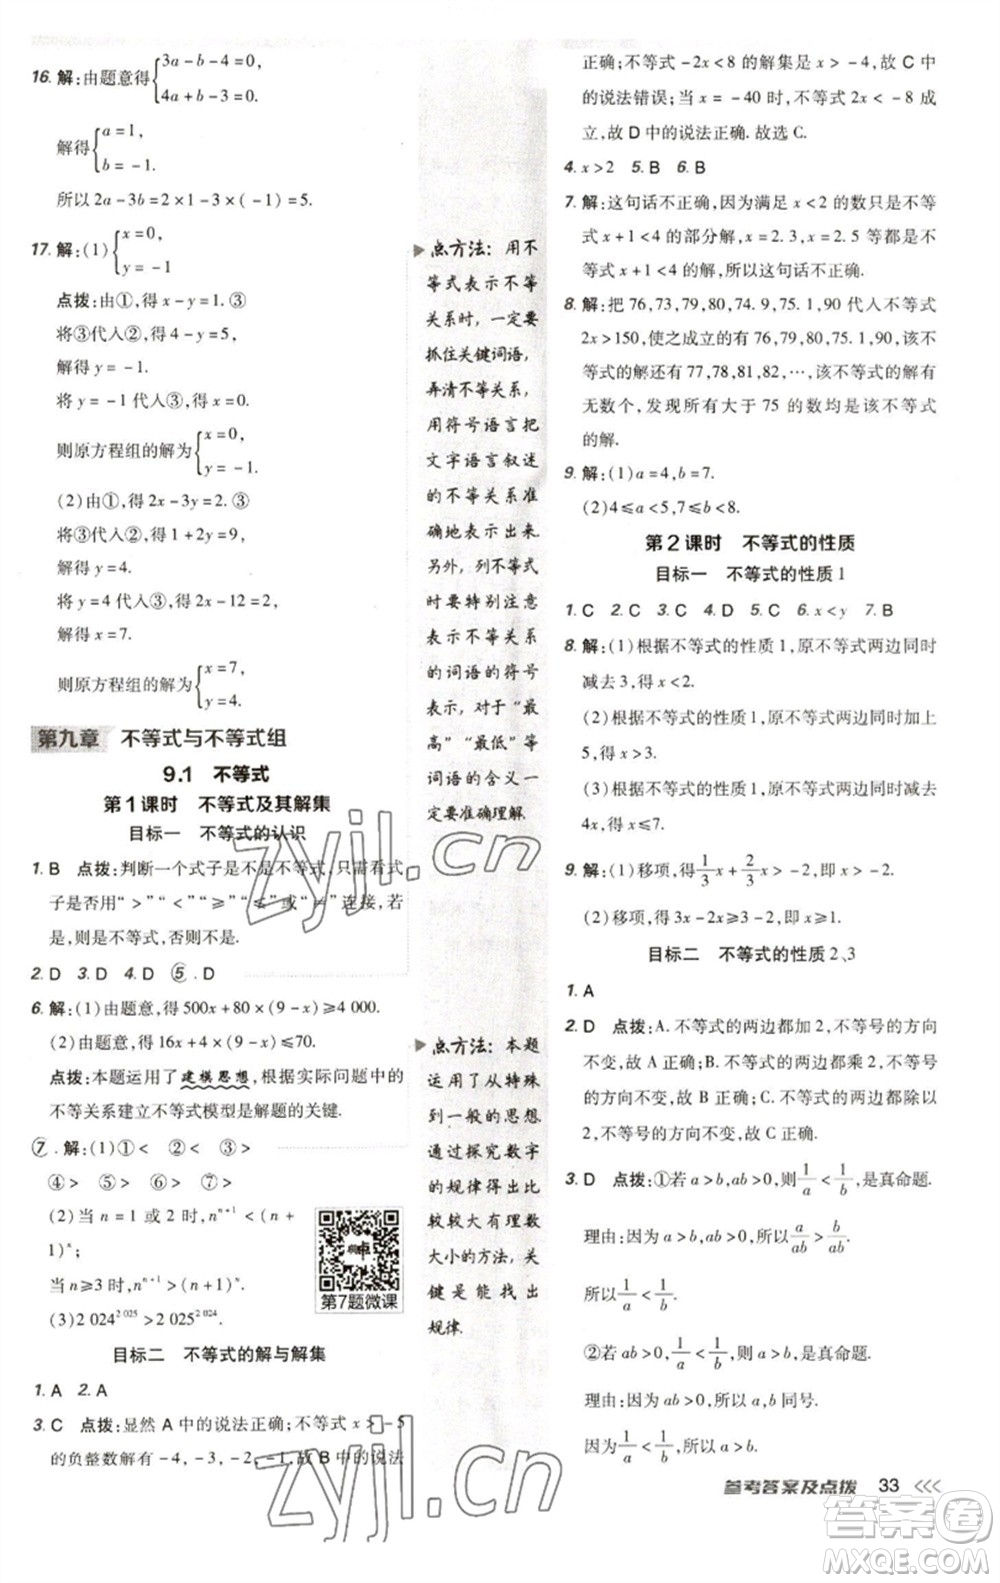 16. 解:由题意得{3a-b-4=0,
4a+b-3=0.
解得{a=1,
b=-1.
所以 2a-3b=2×1-3×(-1)=5.
17. 解:(1){x=0,
y=-1
点拨:由①,得 x-y=1. ③
将③代入②,得 4-y=5,
解得 y=-1.
将 y=-1 代入③,得 x=0.
则原方程组的解为{x=0,
y=-1.
(2)由①,得 2x-3y=2. ③
将③代入②,得 (2+5)/7+2y=9,
解得 y=4.
将 y=4 代入③,得 2x-12=2,
解得 x=7.
则原方程组的解为{x=7,
y=4.
第九章 不等式与不等式组
9.1 不等式
第1课时 不等式及其解集
目标一 不等式的认识
1. B 点拨:判断一个式子是不是不等式,只需看式
子是否用“>”“<”“≥”“≤”或“≠”连接,若
是,则是不等式,否则不是.
2. D 3. D 4. D ⑤. D
6. 解:(1)由题意,得 500x+80×(9-x)≥4 000.
(2)由题意,得 16x+4×(9-x)≤70.
点拨:本题运用了建模思想,根据实际问题中的
不等关系建立不等式模型是解题的关键.
⑦. 解:(1)①< ②< ③>
④> ⑤> ⑥>
(2)当 n=1 或 2 时,nⁿ⁺¹<(n+
1)ⁿ;
当 n≥3 时,nⁿ⁺¹>(n+1)ⁿ.
(3)2 024²⁰²⁵>2 025²⁰²⁴
第7题微课
目标二 不等式的解与解集
1. A 2. A
3. C 点拨:显然 A 中的说法正确;不等式 x>-5
的负整数解有-4,-3,-2,-1,故 B 中的说法
点方法:用不
等式表示不等
关系时,一定要
抓住关键词语,
弄清不等关系,
用符号语言把
文字语言叙述
的不等关系准
确地表示出来.
另外,列不等式
时要特别注意
表示不等关系
的词语的符号
表示,对于“最
高”“最低”等
词语的含义一
定要准确理解.
点方法:本题
运用了从特殊
到一般的思想
通过探究数字
的规律得出比
较较大有理数
大小的方法,关
键是能找出
规律.
正确;不等式 -2x<8 的解集是 x>-4,故 C 中
的说法错误;当 x=-40 时,不等式 2x<-8 成
立,故 D 中的说法正确.故选 C.
4. x>2 5. B 6. B
7. 解:这句话不正确,因为满足 x<2 的数只是不等
式 x+1<4 的部分解,x=2,x=2.5 等都是不
等式 x+1<4 的解,所以这句话不正确.
8. 解:把 76,73,79,80,74.9,75.1,90 代入不等式
2x>150,使之成立的有 76,79,80,75.1,90.此不
等式的解还有 77,78,81,82,…,该不等式的解有
无数个,发现所有大于 75 的数均是该不等式
的解.
9. 解:(1)a=4,b=7.
(2)4≤a<5,7≤b<8.
第2课时 不等式的性质
目标一 不等式的性质 1
1. C 2. C 3. C 4. D 5. C 6. x<y 7. B
8. 解:(1)根据不等式的性质 1,原不等式两边同时
减去 3,得 x<2.
(2)根据不等式的性质 1,原不等式两边同时加上
5,得 x>0.
(3)根据不等式的性质 1,原不等式两边同时减去
4x,得 x≤7.
9. 解:(1)移项,得 1/3 x+2/3 x>-2,即 x>-2.
(2)移项,得 3x-2x≥3-2,即 x≥1.
目标二 不等式的性质 2、3
1. A
2. D 点拨:A.不等式的两边都加 2,不等号的方向
不变,故 A 正确;B.不等式的两边都乘 2,不等号
的方向不变,故 B 正确;C.不等式的两边都除以
2,不等号的方向不变,故 C 正确.
3. D 点拨:①若 a>b,ab>0,则 1/a<1/b,是真命题.
理由:因为 a>b,ab>0,所以 a/ab>b/ab.
所以 1/a<1/b.
②若 ab>0,1/a<1/b,则 a>b,是真命题.
理由:因为 ab>0,所以 a,b 同号.
因为 1/a<1/b,所以 a>b.
参考答案及点拨 33
zyjl.cn
zyjl.cn
答案圈
MXQE.COM